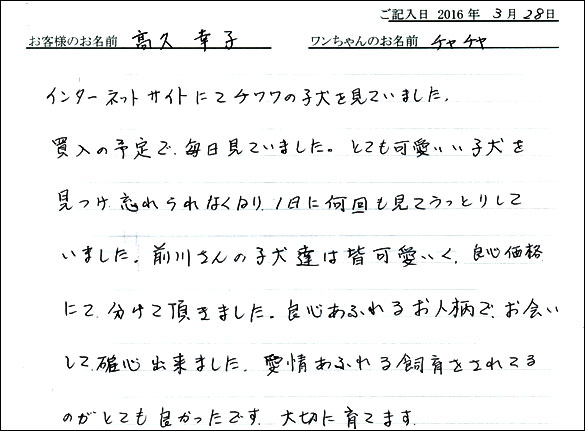 ご記入日 2016 年 3月28日
お客様のお名前 髙久 幸子 ワンちゃんのお名前 チャチャ
インターネットサイトにてチワワの子犬を見ていました。
買入の予定で、毎日見ていました。とても可愛いい子犬を
見つけ忘れられなくなり、1日に何回も見てうっとりして
いました。前川さんの子犬達は皆可愛いく、良心価格
にて、分けて頂きました。良心あふれるお人柄で、お会い
して、確心出来ました。愛情あふれる飼育をされてる
のがとても良かったです。大切に育てます。